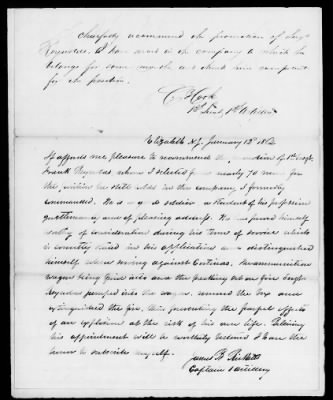 I cheerfully recommend the promotion of Sergt
Reynolds. I have served in the company to which he
belongs for some months and think him competent
for the position.
C. P. Cook
1st Lieut, 1st Artillery
Elizabeth N.J. January 13th 1862
It affords me pleasure to recommend the promotion of 1st Sergt
Frank Reynolds whom I selected from nearly 70 men for
the position he still holds in the company I formerly
commanded. He is a good soldier a student of his profession
gentlemanly and of pleasing address. He has proved himself
worthy of consideration during his term of service which
is correctly stated in his application and distinguished
himself when serving against Cortinas. The ammunition
wagon being fired into and the packing set on fire Sergt
Reynolds jumped into the wagon, removed the box and
extinguished the fire, thus preventing the fearful effects
of an explosion at the risk of his own life. Believing
his appointment will be worthily bestowed I have the
honor to subscribe myself.
James B. Ricketts
Captain 1 Artillery